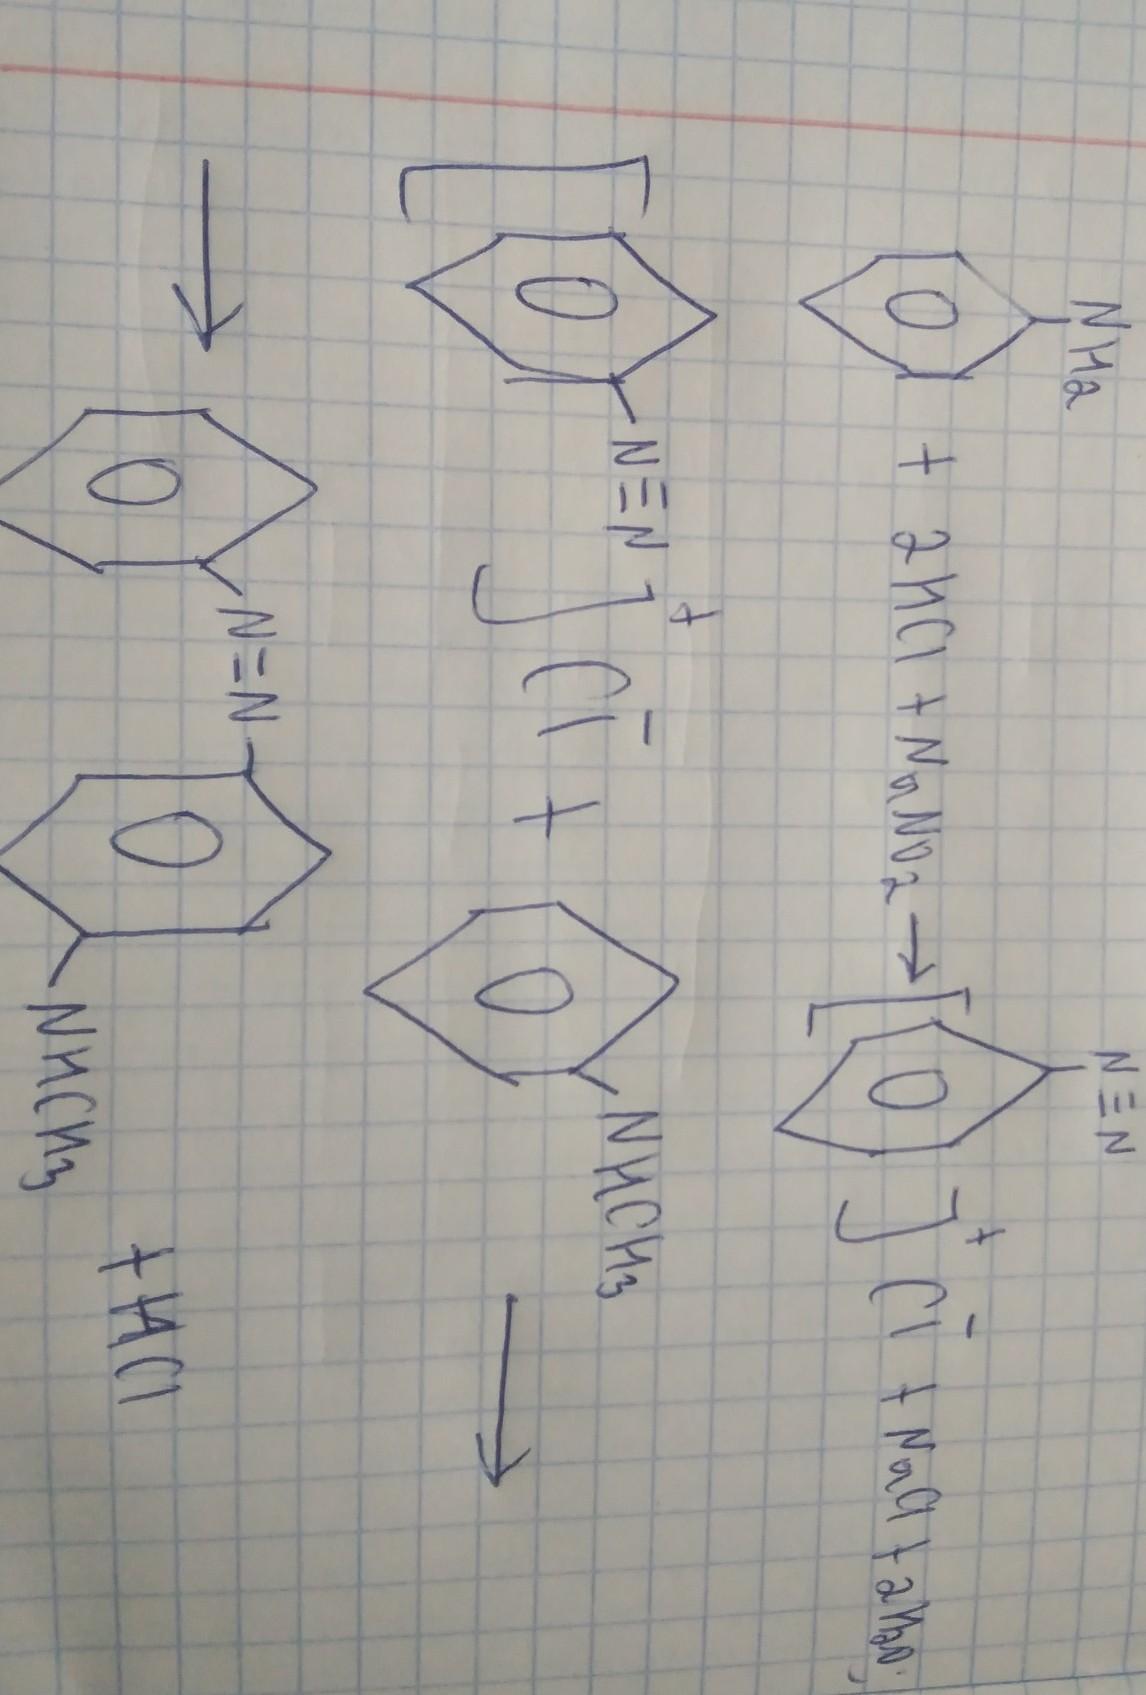 NH2
+ 2HCl + NaNO2 → [ N≡N ]+ Cl- + NaCl + 2H2O
[ N≡N ]+ Cl- + NHCH3 →
→ N=N NHCH3 + HCl